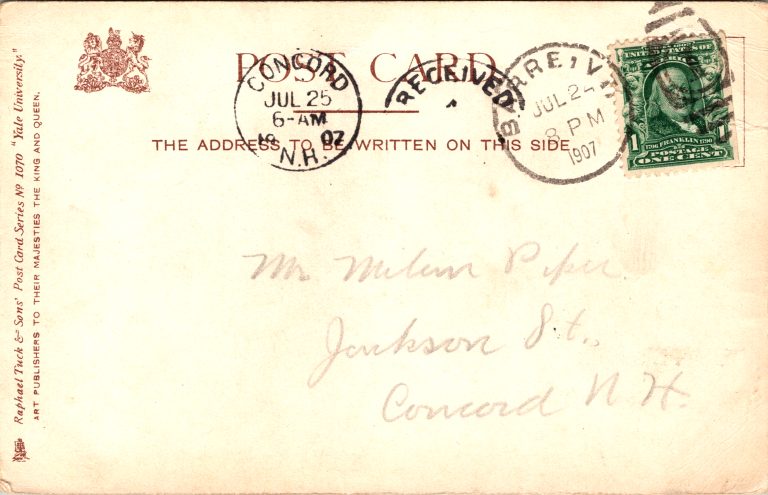 POST CARD
THE ADDRESS TO BE WRITTEN ON THIS SIDE
Raphael Tuck & Sons' Post Card Series Nº 1070 "Yale University."
ART PUBLISHERS TO THEIR MAJESTIES THE KING AND QUEEN.
CONCORD
JUL 25
6-AM
07
N.H.
RECEIVED
BARRE, V
JUL 2
8 PM
1907
UNITED STATES OF
AMERICA
1 1790 FRANKLIN 1790 1
POSTAGE
ONE CENT
Mr Milan Piper
Jackson St.,
Concord N. H.